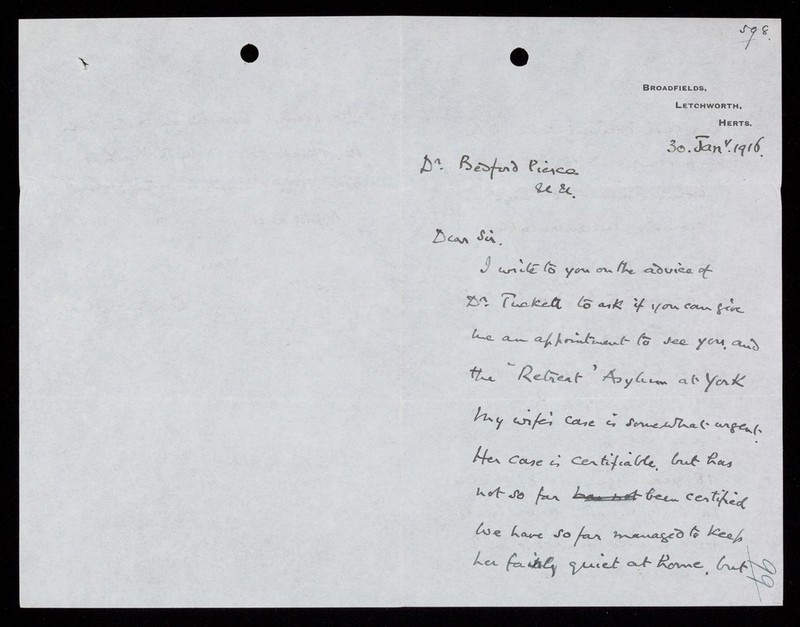 598.
BROADFIELDS,
LETCHWORTH,
HERTS.
30. Jany. 1916.
Dr. Bedford Pierce
Dear Sir.
I write to you on the advice of
Dr. Tuckett to ask if you can give
me an appointment to see you, and
the "Retreat" Asylum at York
My wife's case is somewhat urgent.
Her case is certifiable, but has
not so far has not been certified
We have so far managed to keep
her fairly quiet at home, but
99